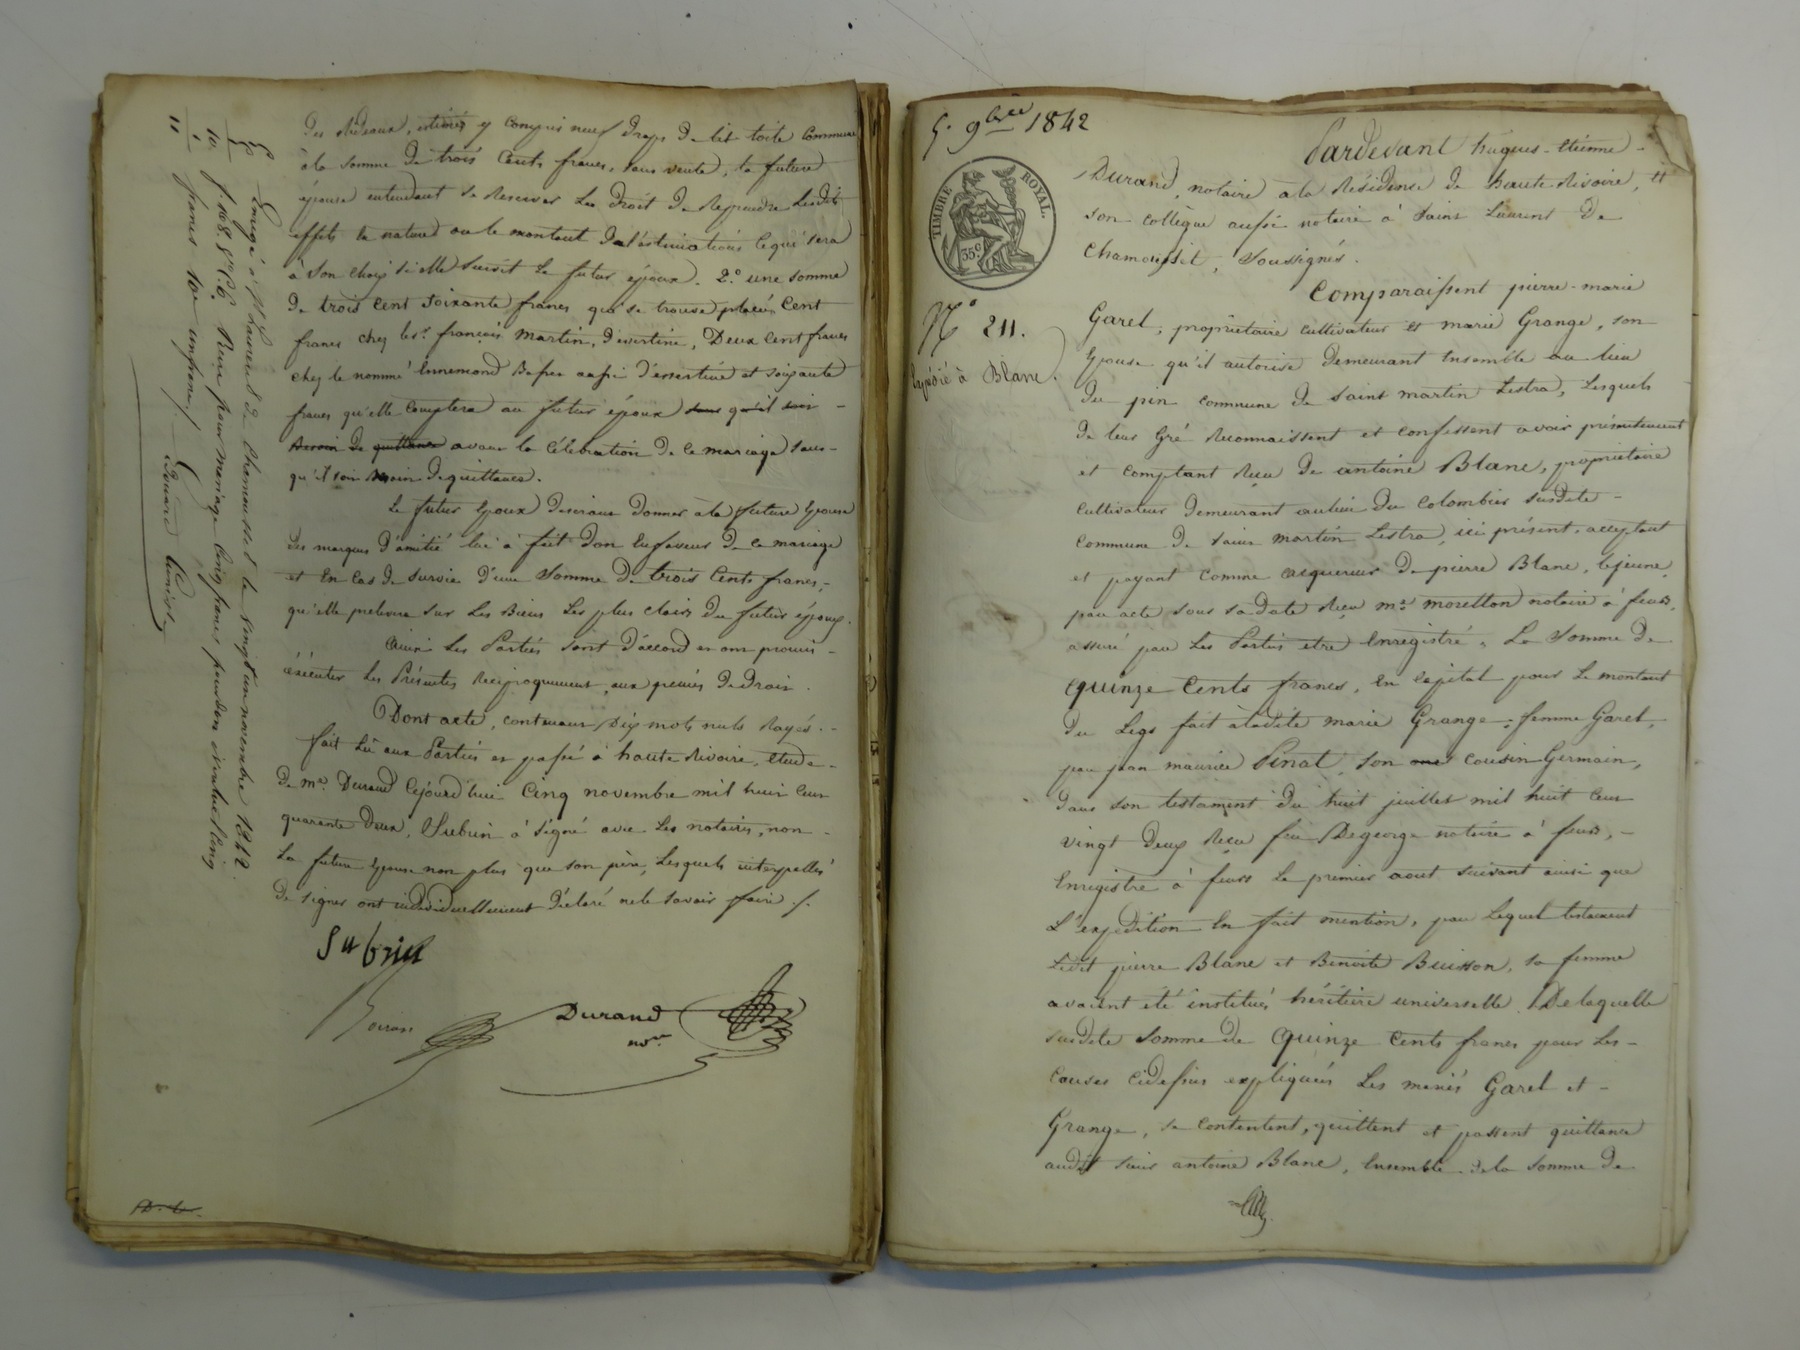 des Rideaux, estimés y compris neuf draps de lit toile commune
à la somme de trois Cents francs, sans vente, la future
épouse entendant se Reserver Le droit de Reprendre Lesdits
effets en nature ou le montant de l'éstimation, Ce qui sera
à Son choix si elle Survit Le futur époux. 2.° une somme
de trois cent soixante francs qui se trouve placée Cent
francs chez le s.r françois Martin, d'essertine, Deux Cent francs
chez le nommé Ennemond aussi d'essertine et soixante
francs qu'elle Comptera au futur époux sans qu'il soit
Besoin de quittance avant la Célébration de Ce mariage sans
qu'il soit Besoin de quittance.
Le futur Epoux Desirant Donner à la future Epouse
Des marques d'amitié lui a fait Don En faveur de Ce mariage
et En Cas de Survie d'une Somme De trois Cents francs,
qu'elle prélevera Sur Les Biens Les plus Clairs du futur époux.
Ainsi Les Parties Sont D'accord et ont promis
éxécuter Les Présentes Réciproquement, aux peines de Droit.
Dont acte, contenant Dix mots nuls Rayés.
fait Lu aux Parties et passé à haute Rivoire, Etude
De m.e Durand Cejourd'hui Cinq novembre mil huit Cent
quarante Deux, Subrin à Signé avec Les notaires, non
La future Epouse non plus que son père, Lesquels interpellés
De signer ont individuellement Déclaré ne le savoir faire ./.
Subrin
Durand
no.re
Enregé à St Laurent de Chamousset le vingt un novembre 1842
f. 168 v° C. 6 Reçu pour mariage Cinq francs pour don éventuel Cinq
francs 10e un franc
5
5
10
1
11
5. 9bre 1842
TIMBRE ROYAL.
35 c
N° 211.
Expédié à Blanc.
Pardevant hugues-Etienne
Durand, notaire à la Résidence de haute Rivoire, et
son collègue aussi notaire à Saint Laurent De
Chamousset, Soussignés.
Comparaissent pierre-marie
Garel, propriétaire cultivateur et marie Grange, son
Epouse qu'il autorise Demeurant Ensemble au lieu
du pin commune de Saint martin Lestra, Lesquels
de leur Gré Reconnaissent et confessent avoir présentement
et comptant Reçu de antoine Blanc, propriétaire
Cultivateur Demeurant au lieu Du Colombier susdite
Commune De Saint martin Lestra, ici présent, acceptant
et payant comme acquereur De pierre Blanc, lejeune,
par acte sous sa date Reçu m.e moretton notaire à feurs,
assuré par Les Parties etre Enregistré, La Somme de
quinze Cents francs, En Capital pour Le montant
Du Legs fait à ladite marie Grange, femme Garel,
par jean maurice Pinat, son one Cousin Germain,
Dans son testament Du huit juillet mil huit Cent
vingt Deux Reçu feu Degeorge notaire à feurs,
Enregistré à feurs Le premier aout Suivant ainsi que
L'expédition En fait mention, par Lequel testament
Ledit pierre Blanc et Benoite Buisson, sa femme
avaient été institués héritière universelle. De laquelle
susdite Somme de quinze Cents francs pour Les
Causes Cidessus expliquées Les mariés Garel et
Grange, se Contentent, quittent et passent quittance
audit Sieur antoine Blanc, Ensemble de la Somme De